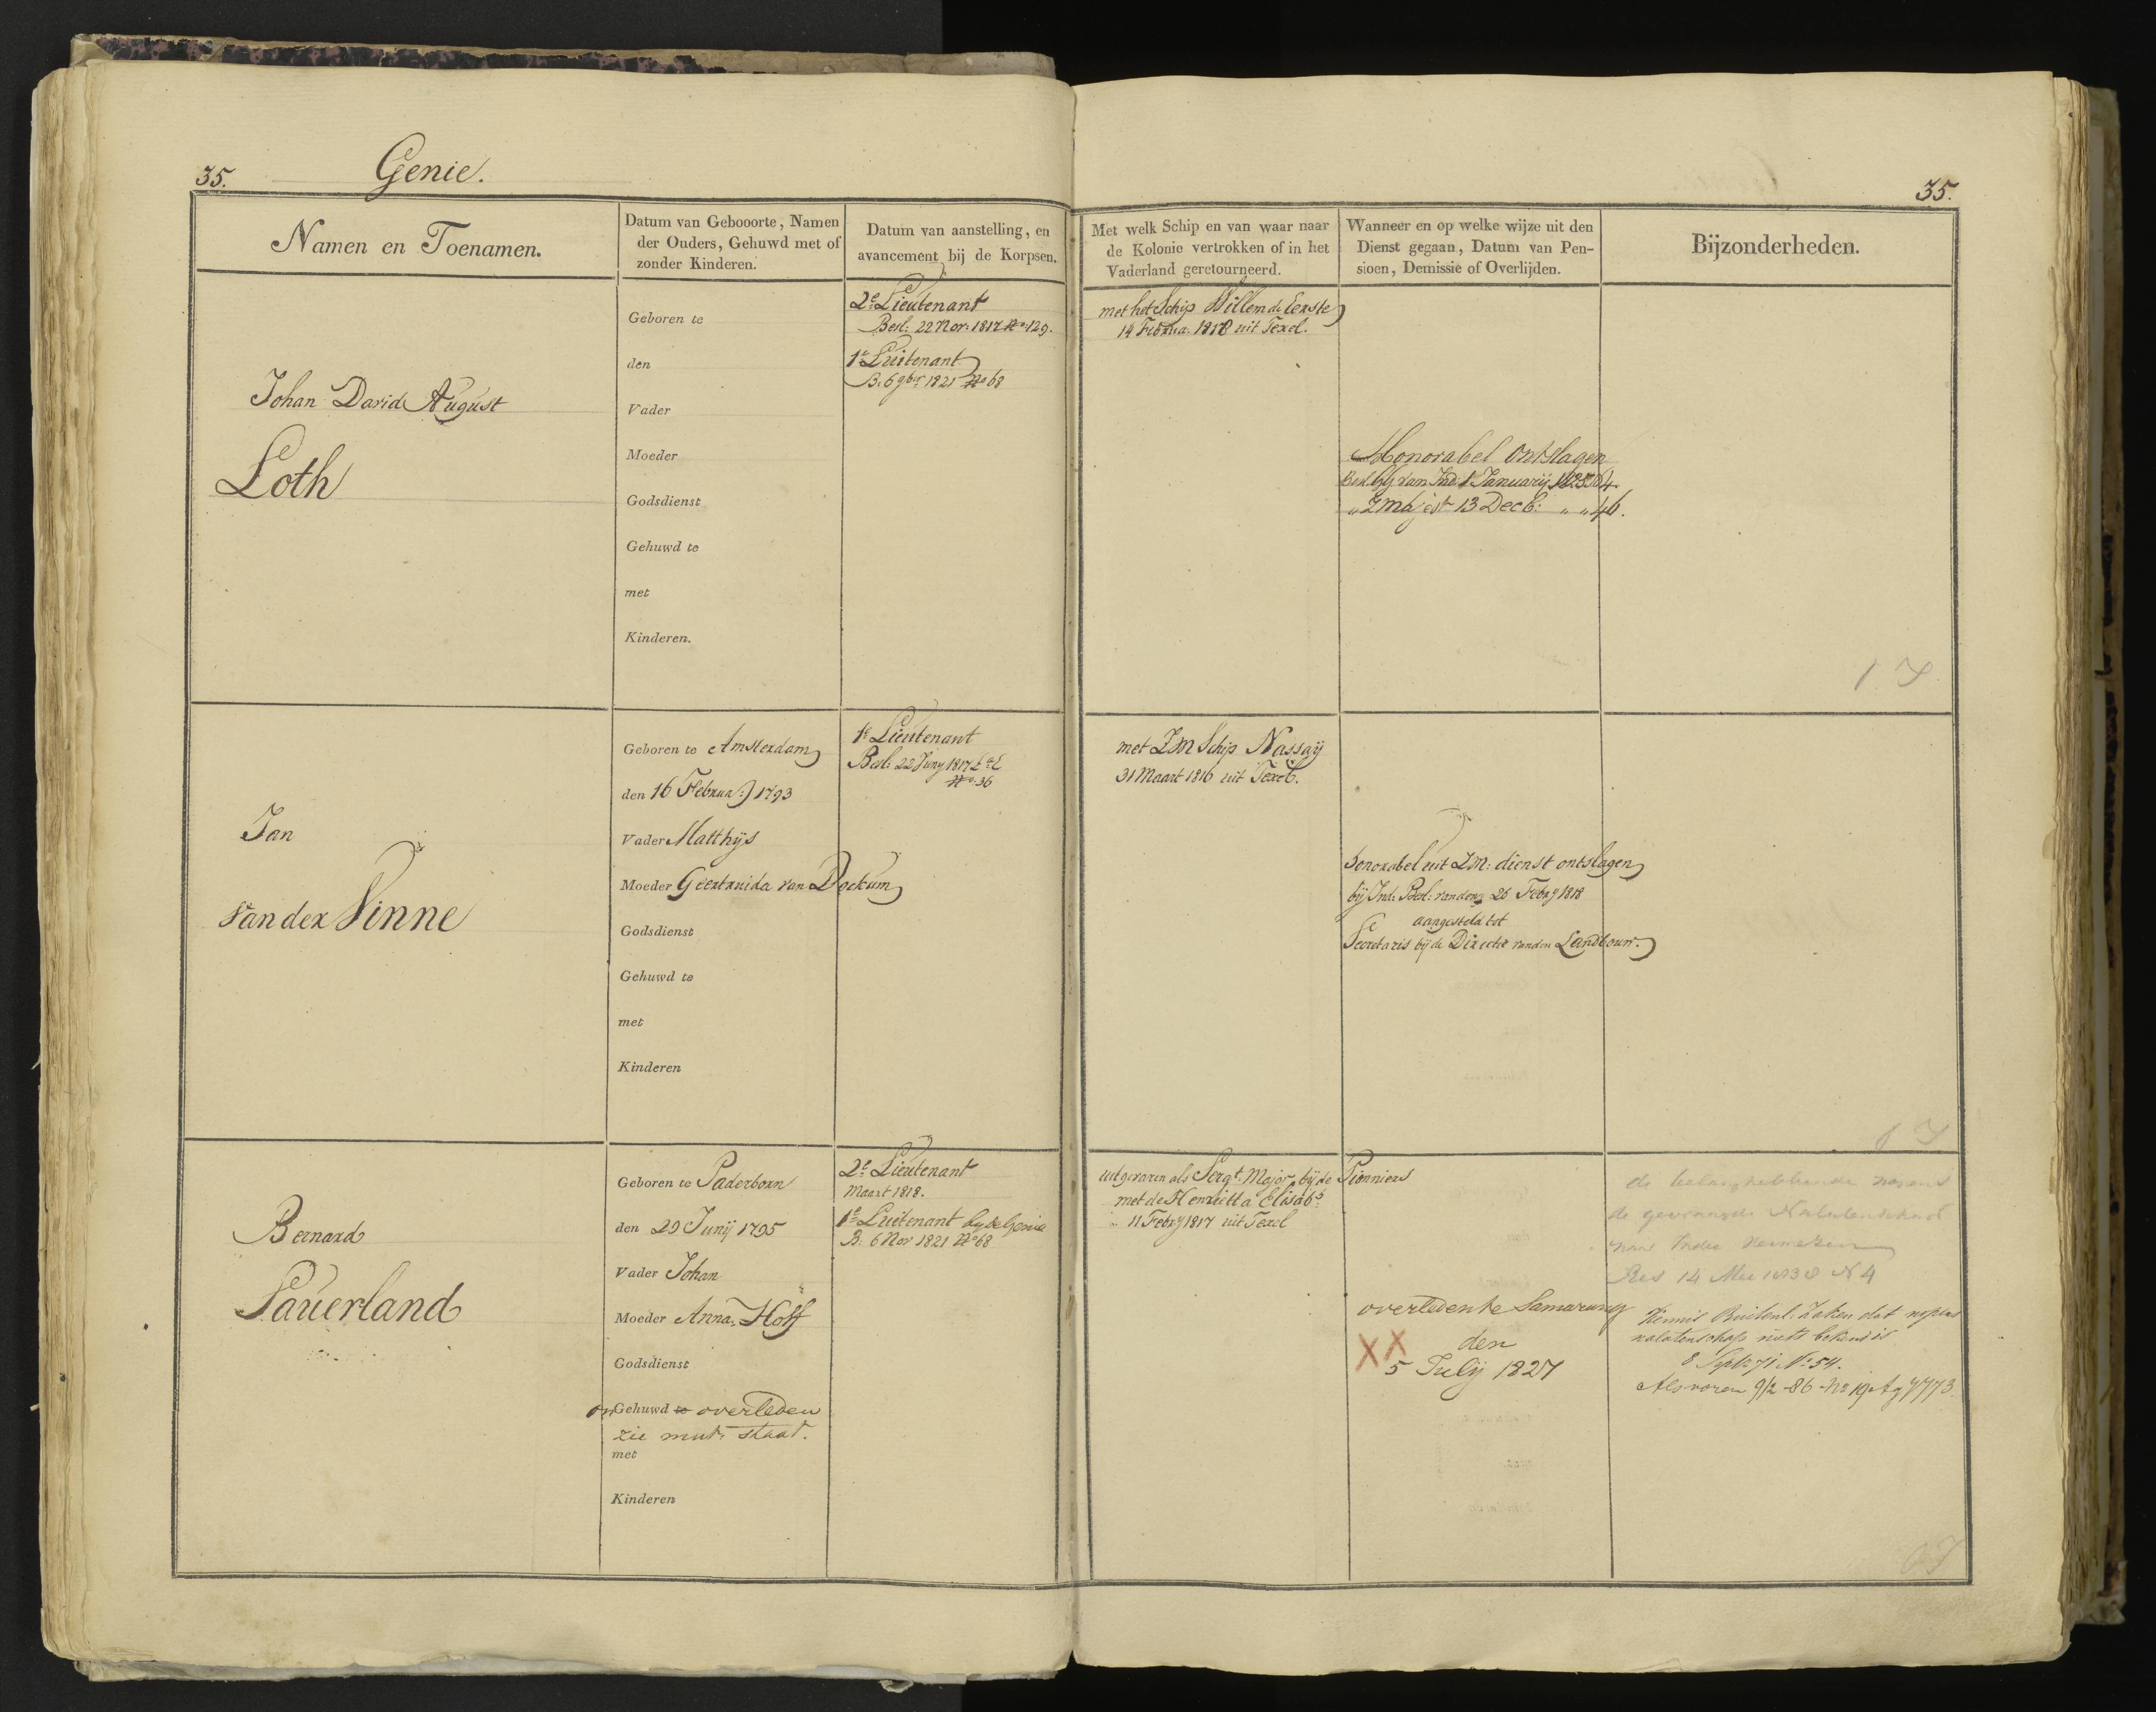 35.
Genie.
35.
Namen en Toenamen.
Datum van Gebooorte, Namen
der Ouders, Gehuwd met of
zonder Kinderen.
Datum van aanstelling, en
avancement bij de Korpsen.
Met welk Schip en van waar naar
de Kolonie vertrokken of in het
Vaderland geretourneerd.
Wanneer en op welke wijze uit den
Dienst gegaan, Datum van Pen-
sioen, Demissie of Overlijden.
Bijzonderheden.
Johan David August
Loth
Geboren te
den
Vader
Moeder
Godsdienst
Gehuwd te
met
Kinderen.
2e Lieutenant
Besl: 22 Nov: 1817 No 129.
1e Luitenant
B: 6 9ber 1821 No 68
met het Schip Willem de Eerste
14 Februa: 1818 uit Texel.
Honorabel Ontslagen
Besl. GG van Ind: 1 Januarij 1825 No 4.
" ZMajest 13 Decb: " " 46.
Jan
van der Vinne
Geboren te Amsterdam
den 16 Februa: 1793
Vader Matthijs
Moeder Geertruida van Dockum
Godsdienst
Gehuwd te
met
Kinderen
1e Lieutenant
Besl: 22 Juny 1817
No 36
met ZM Schip Nassaÿ
31 Maart 1816 uit Texel.
honorabel uit ZM: dienst ontslagen
bij Ind: Besl: van den 26 Febry 1818
aangesteld tot
Secretaris bij de Directie van den Landbouw.
Bernard
Sauerland
Geboren te Paderborn
den 29 Junij 1795
Vader Johan
Moeder Anna Hoff
Godsdienst
onGehuwd te overleden
zie mut: staat.
met
Kinderen
2e Lieutenant
Maart 1818.
1e Luitenant by de Genie
B: 6 Nov 1821 No 68
uitgevaren als Sergt. Major bij de Pionniers
met de Henrietta Elisabh
11 Febry 1817 uit Texel
overleden te Samarang
XX
den
5 Julij 1827
de belanghebbende
de gevraagde Nalatenschap
naar Indie
Res 14 Mei 1838 N 4
Kennis Buitenl: Zaken dat nopens
nalatenschap niets bekend is
8 Sept: 71 No 54.
Als voren 9/2 - 86 No 19